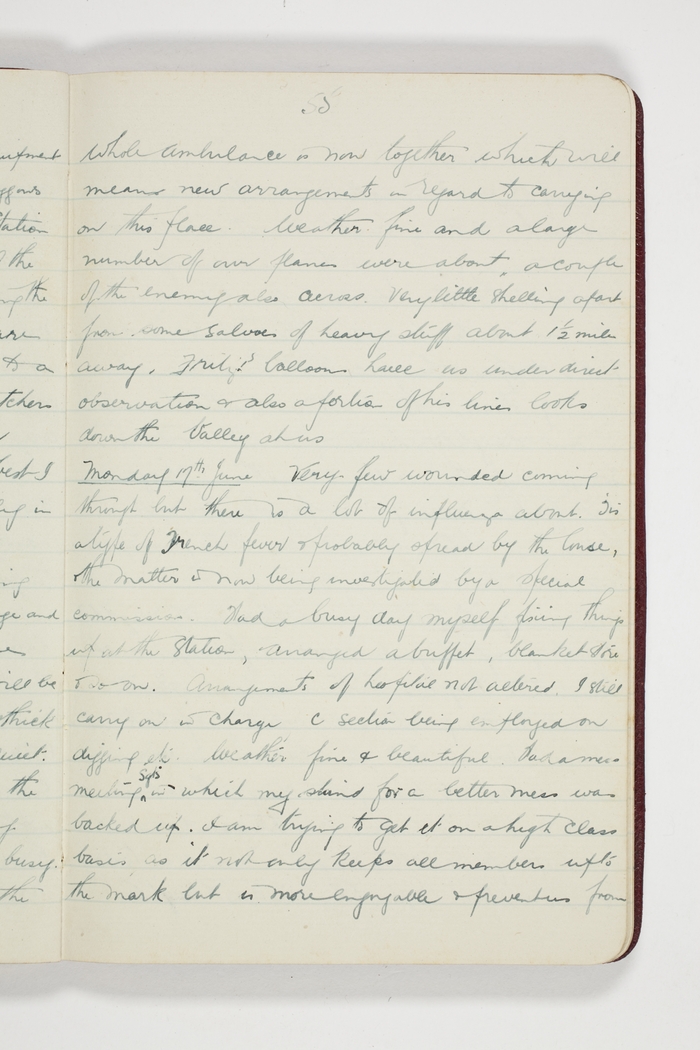 55
whole ambulance is now together which will
means new arrangements in regard to carrying
on this place. Weather fine and a large
number of our planes were about, a couple
of the enemy also across. Very little shelling apart
from some salvos of heavy stuff about 1½ mile
away. Fritz's balloons have us under direct
observation & also a portion of his lines looks
down the Valley at us
Monday 17th June Very few wounded coming
through but there is a lot of influenza about. Tis
a type of Trench fever & probably spread by the louse,
the matter is now being investigated by a special
commission. Had a busy day myself fixing things
up at the Station, arranged a buffet, blanket store
& so on. Arrangements of hospital not altered. I still
carry on in charge C section being employed on
digging etc. Weather fine & beautiful. Had a mess
meeting Sgts in which my stand for a better mess was
backed up. I am trying to get it on a high class
basis as it not only keeps all members up to
the mark but is more enjoyable & prevents us from
uipment
ggons
tation
the
the
to a
tchers
best I
in
ge and
ill be
thick
quiet.
the
busy.
the